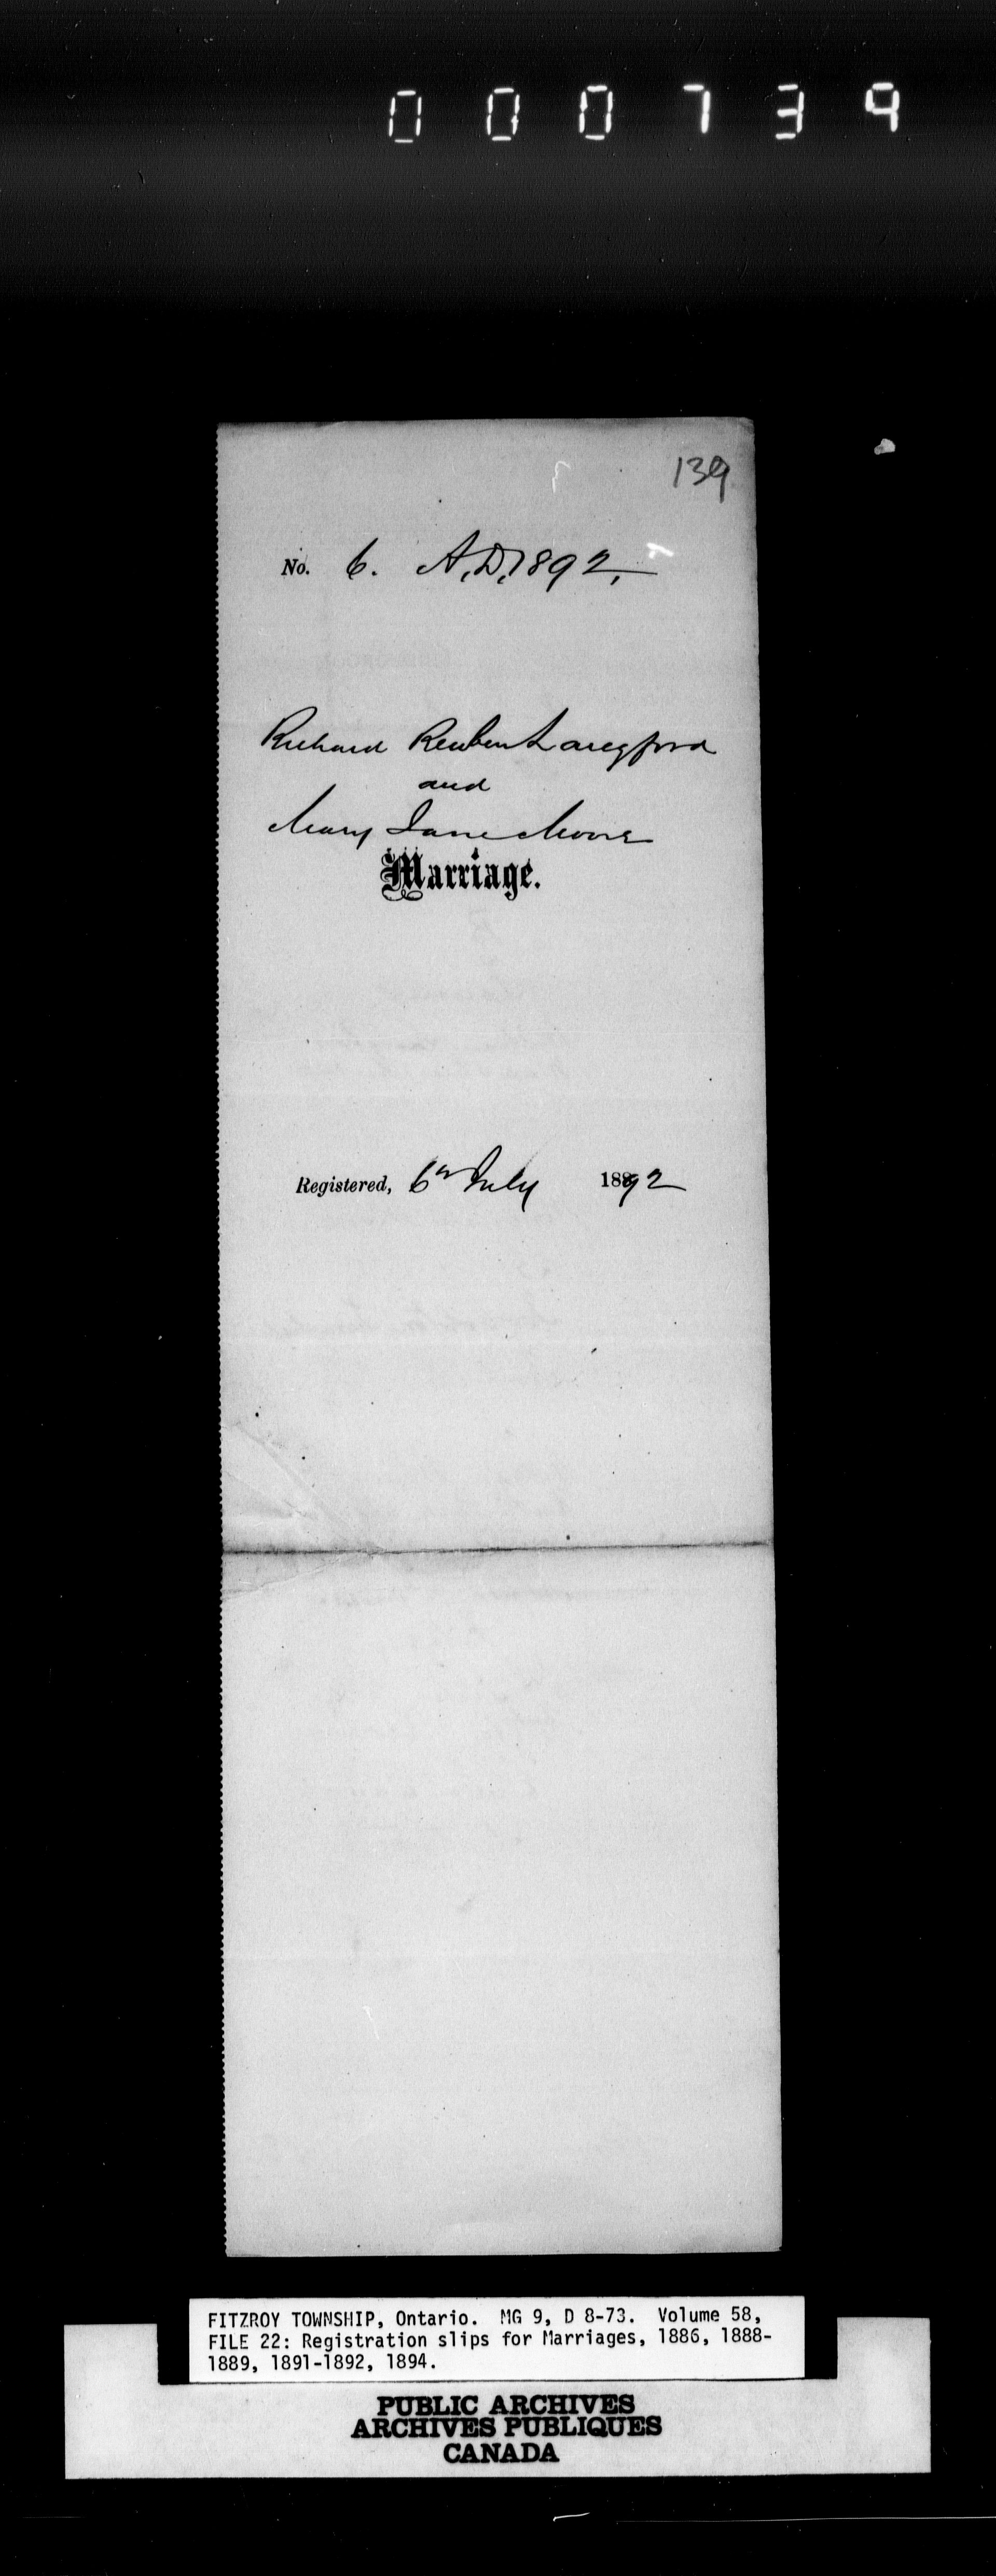 000739
139
No. 6. A.D. 1892.
Richard Reuben Langford
and
Mary Jane Moore
Marriage.
Registered, 6th July 1892
FITZROY TOWNSHIP, Ontario. MG 9, D 8-73. Volume 58,
FILE 22: Registration slips for Marriages, 1886, 1888-
1889, 1891-1892, 1894.
PUBLIC ARCHIVES
ARCHIVES PUBLIQUES
CANADA